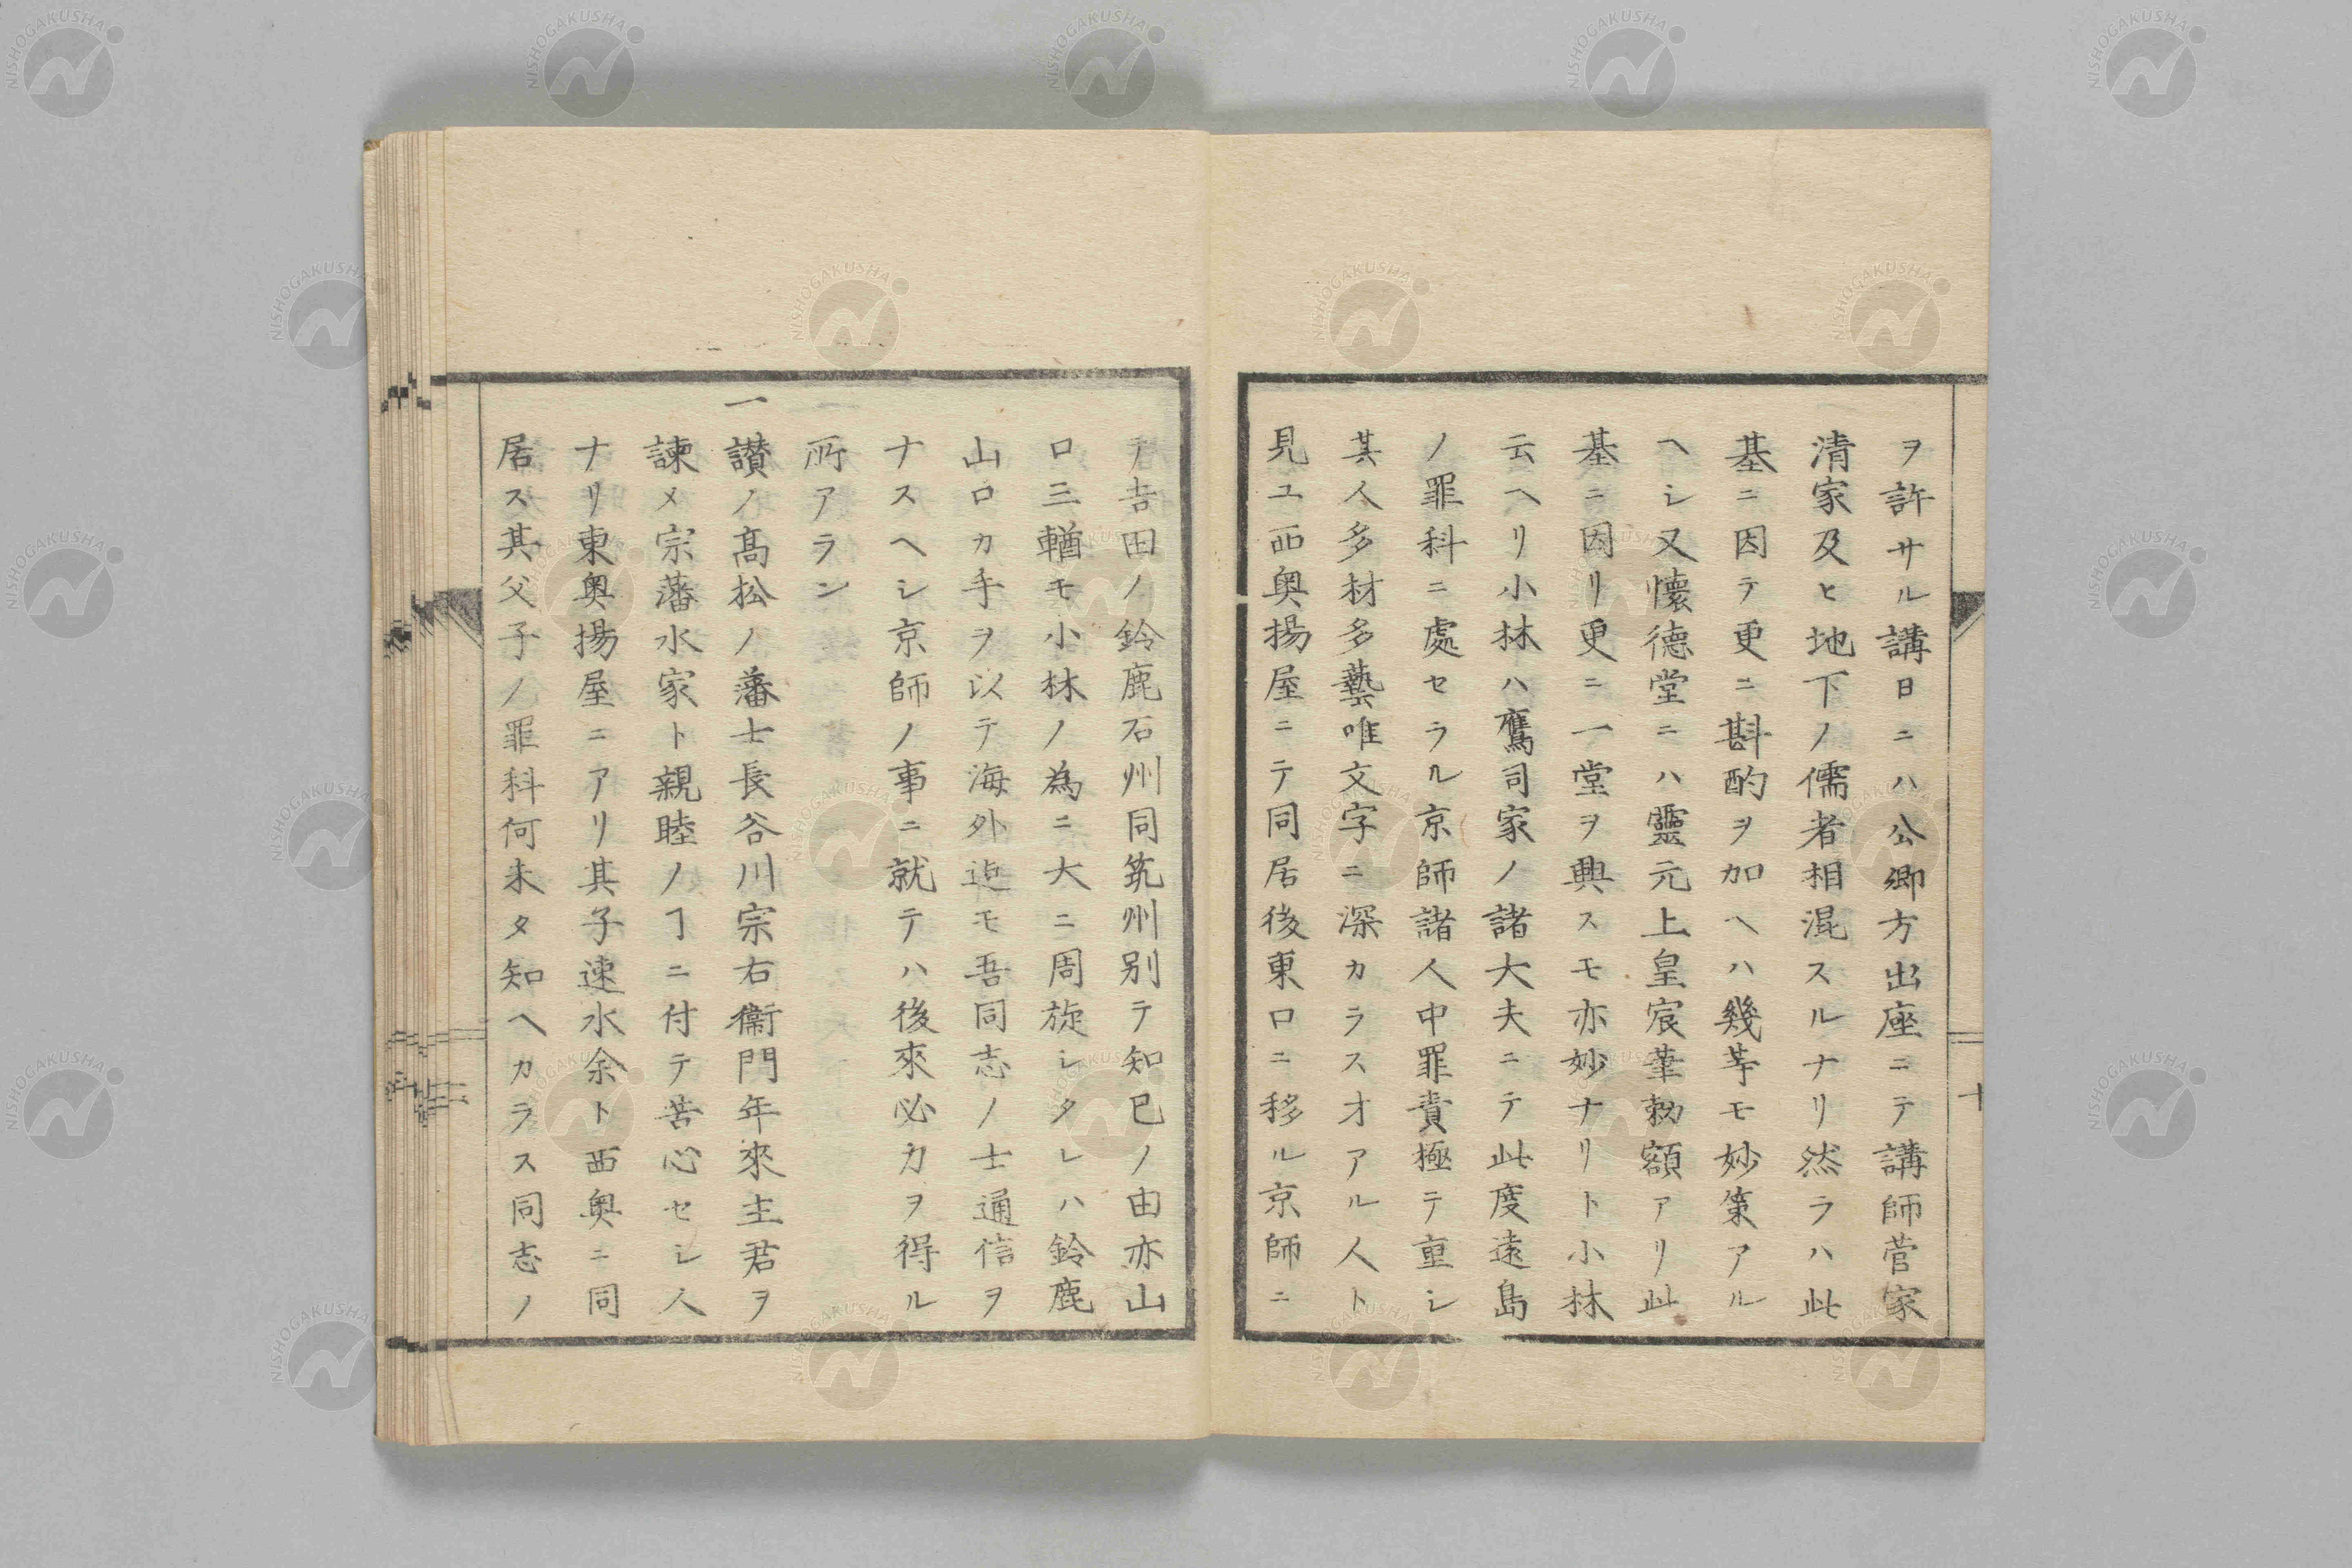 ヲ許サル講日ニハ公卿方出座ニテ講師菅家
清家及ヒ地下ノ儒者相混スルナリ然ラハ此
基ニ因テ更ニ斟酌ヲ加ヘハ幾等モ妙策アル
ヘシ又懐徳堂ニハ靈元上皇宸筆勅額アリ此
基ニ因リ更ニ一堂ヲ興スモ亦妙ナリト小林
云ヘリ小林ハ鷹司家ノ諸大夫ニテ此度遠島
ノ罪科ニ處セラル京師諸人中罪責極テ重シ
其人多材多藝唯文字ニ深カラス才アル人ト
見ユ西奥揚屋ニテ同居後東口ニ移ル京師ニ
十
テ吉田ノ鈴鹿石州同筑州別テ知己ノ由亦山
口三輶モ小林ノ為ニ大ニ周旋シタレハ鈴鹿
山口カ手ヲ以テ海外迄モ吾同志ノ士通信ヲ
ナスヘシ京師ノ事ニ就テハ後來必力ヲ得ル
所アラン
一讃ノ髙松ノ藩士長谷川宗右衞門年來主君ヲ
諫メ宗藩水家ト親睦ノヿニ付テ苦心セシ人
ナリ東奥揚屋ニアリ其子速水余ト西奥ニ同
居ス其父子ノ罪科何未タ知ヘカラス同志ノ
NISHOGAKUSHA